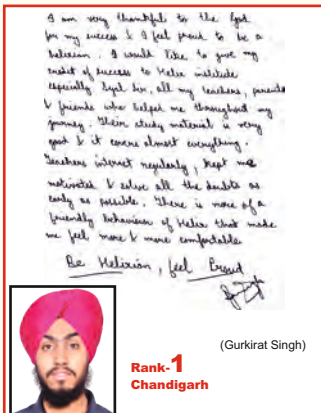 I am very thankful to the God
for my success & I feel proud to be a
helixian. I would like to give my
credit of success to Helix institute
especially Syal Sir, all my teachers, parents
& friends who helped me throughout my
journey. Their study material is very
good & it covers almost everything.
Teachers interact regularly, kept me
motivated & solve all the doubts as
early as possible. There is more of a
friendly behaviour of Helix that made
me feel more & more comfortable
Be Helixian, feel Proud
(Gurkirat Singh)
Rank-1
Chandigarh